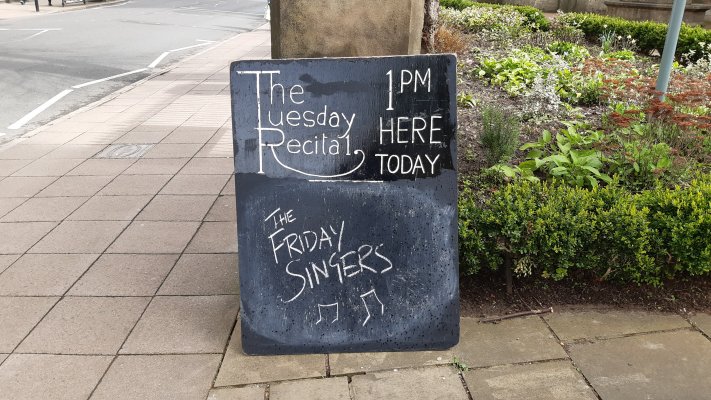 The
Tuesday
Recital
1PM
HERE
TODAY
THE
FRIDAY
SINGERS